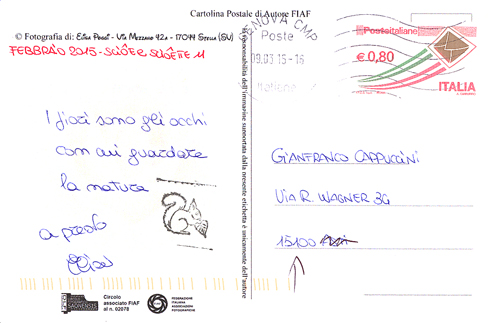 Cartolina Postale di Autore FIAF
© Fotografia di: Elisa Poggi - Via Mezzano 42A - 17044 Stella (SV)
FEBBRAIO 2015 -
I fiori sono gli occhi
con cui guardare
la natura
a presto
Elisa
Circolo
associato FIAF
al n. 02078
FEDERAZIONE
ITALIANA
ASSOCIAZIONI
FOTOGRAFICHE
responsabilità dell'immagine supportata dalla presente etichetta è unicamente dell'autore
GENOVA CMP
Poste
09.03.15-16
Italiane
Posteitaliane
€ 0,80
ITALIA
GIANFRANCO CAPPUCCINI
VIA R. WAGNER 3G
15100